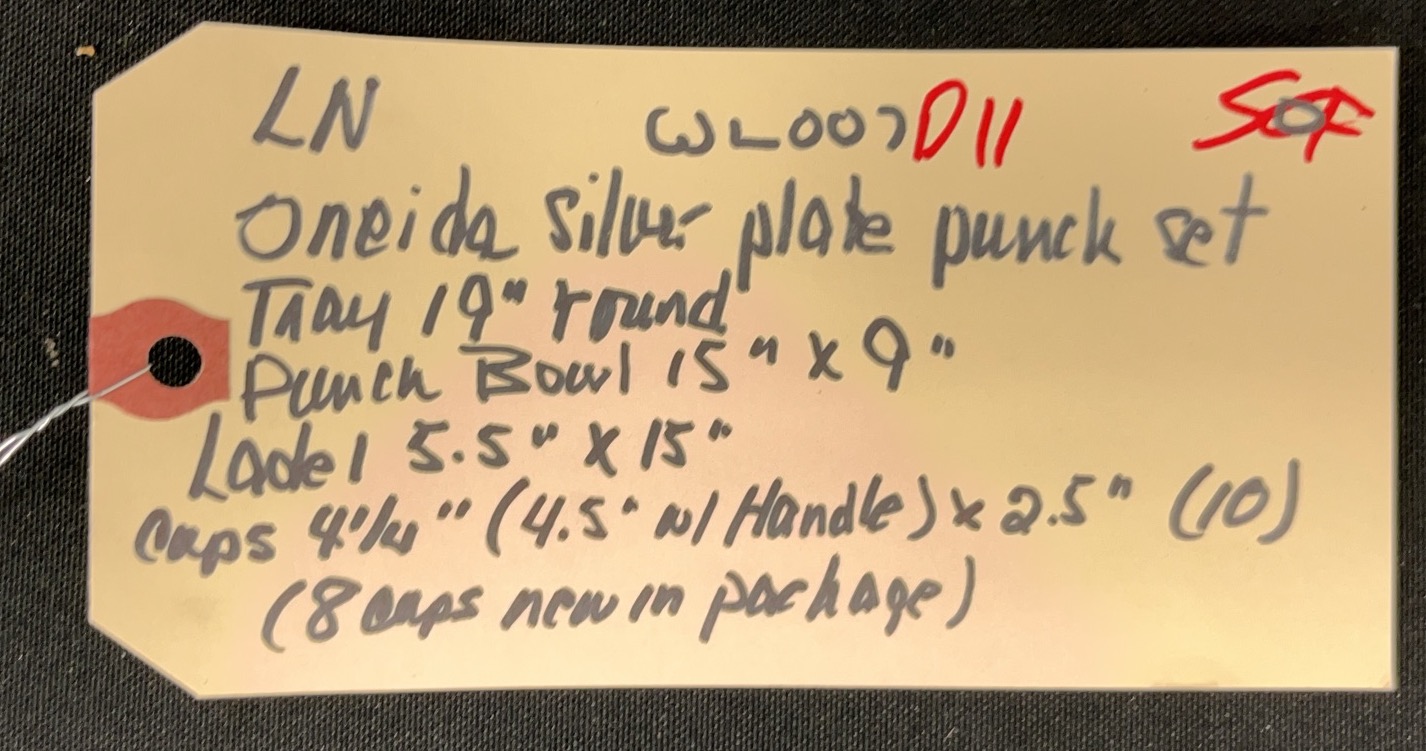 LN WL007 D11 SOF
Oneida Silver plate punch set
Tray 19" round
Punch Bowl 15" x 9"
Ladel 5.5" x 15"
Cups 4 1/4" (4.5" w/ Handle) x 2.5" (10)
(8 cups new in package)